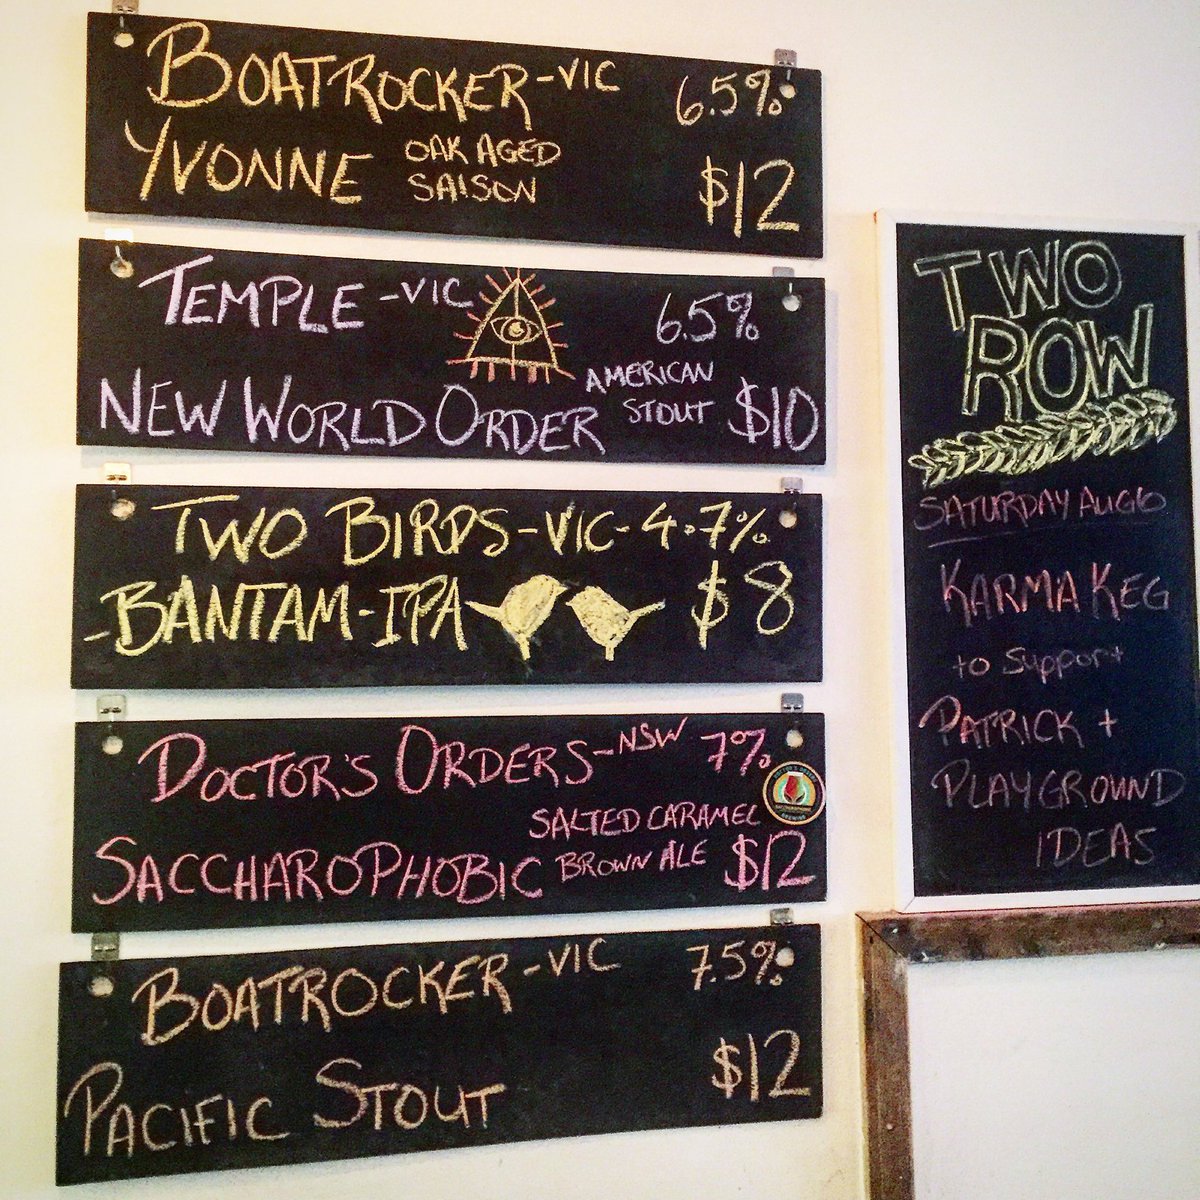 BOATROCKER-VIC 6.5%
YVONNE OAK AGED SAISON $12
TEMPLE-VIC 6.5%
NEW WORLD ORDER AMERICAN STOUT $10
TWO BIRDS-VIC-4.7%
-BANTAM-IPA $8
DOCTOR'S ORDERS-NSW 7%
SALTED CARAMEL
SACCHAROPHOBIC BROWN ALE $12
BOATROCKER-VIC 7.5%
PACIFIC STOUT $12
TWO
ROW
SATURDAY AUG10
KARMA KEG
to Support
PATRICK +
PLAYGROUND
IDEAS